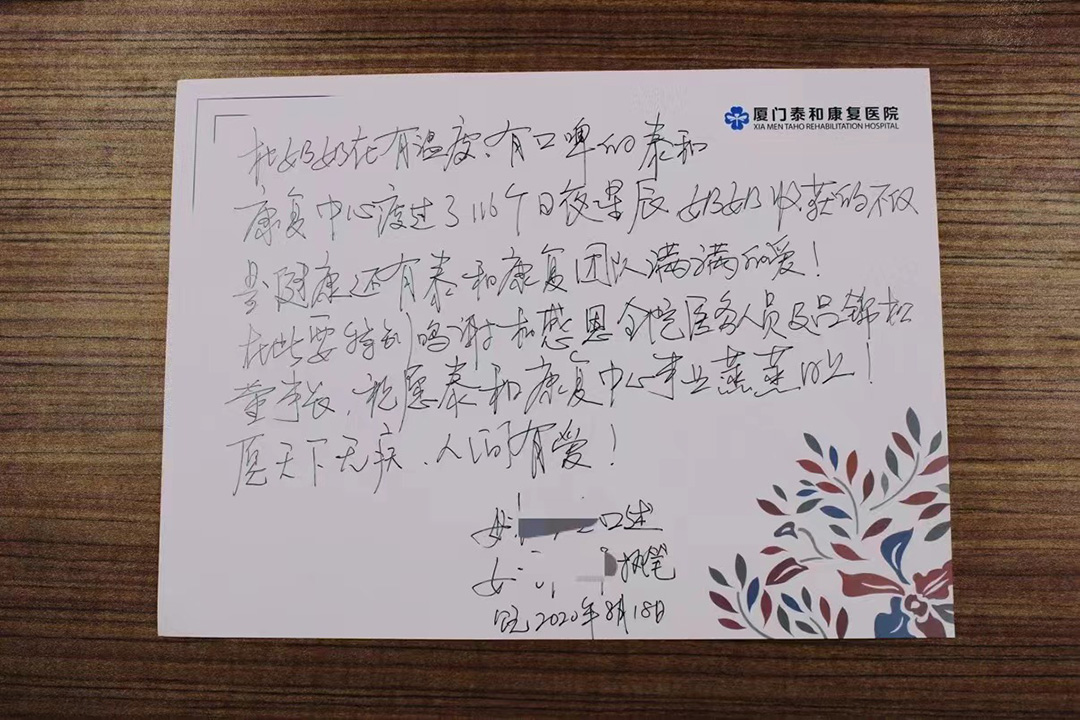 厦门泰和康复医院
XIA MEN TAHO REHABILITATION HOSPITAL
杜奶奶在有温度、有口啤的泰和
康复中心度过了116个日夜星辰、奶奶收获的不仅
是健康还有泰和康复团队满满的爱！
在此要特别鸣谢和感恩全院医务人员及吕锦松
董事长、祝愿泰和康复中心事业蒸蒸日上！
愿天下无疾、人间有爱！
母 口述
女 执笔
2020年8月18日